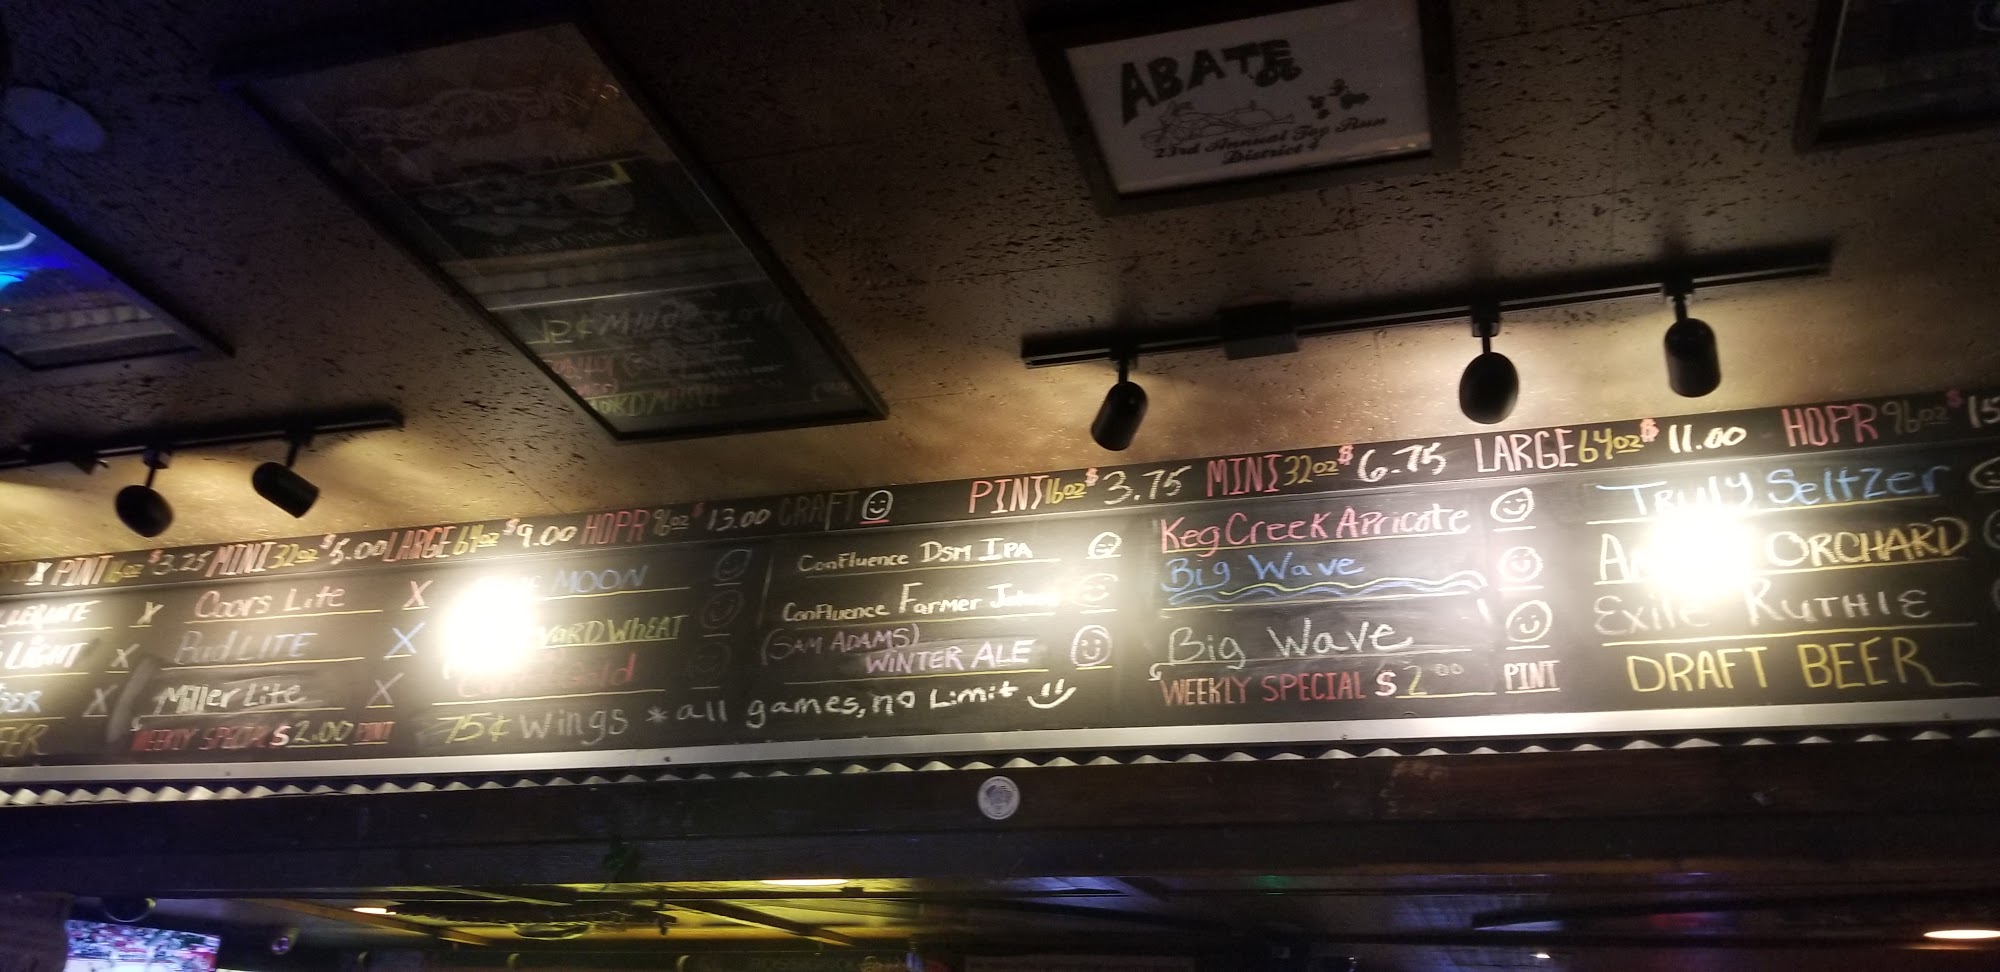 ABATE
23rd Annual Tap Run
District 4
X PINT 16oz $3.25 MINI 32oz $5.00 LARGE 64oz $9.00 HOPR 96oz $13.00 CRAFT
PINT 16oz $3.75 MINI 32oz $6.75 LARGE 64oz $11.00 HOPR 96oz $15
X Coors Lite X MOON
LIGHT X Bud LITE X WHEAT
X Miller Lite X Gold
WEEKLY SPECIAL $2.00 PINT
75¢ Wings *all games, no Limit
Confluence DSM IPA
Confluence Farmer
(SAM ADAMS)
WINTER ALE
Keg Creek Apricote
Big Wave
Big Wave
WEEKLY SPECIAL $2.00 PINT
TRULY Seltzer
ORCHARD
Exile RUTHIE
DRAFT BEER